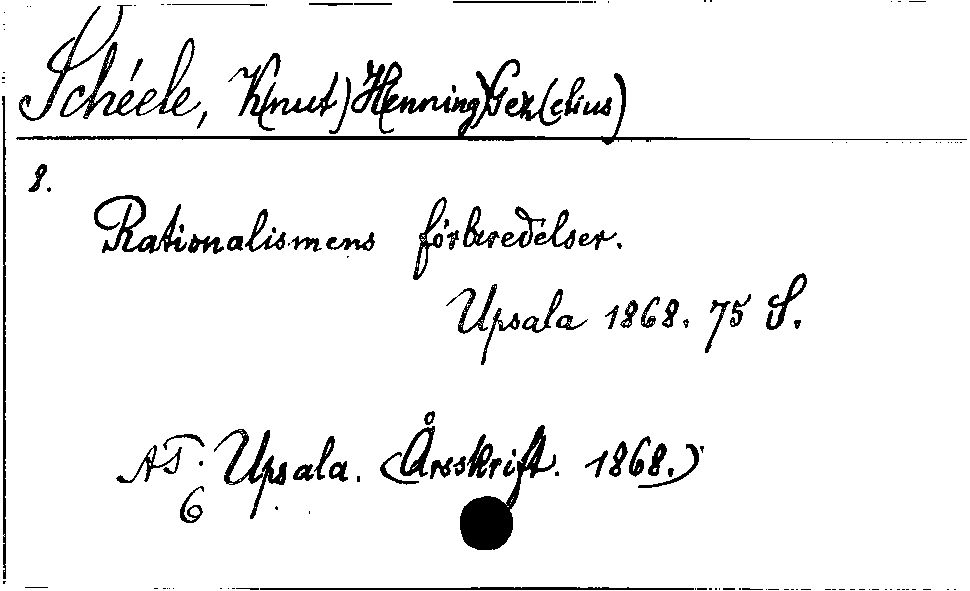 Schéele, K(nut) Henning) Gez(elius)
8.
Rationalismens förberedelser.
Upsala 1868. 75 S.
AT. Upsala. (Årsskrift. 1868.)
6